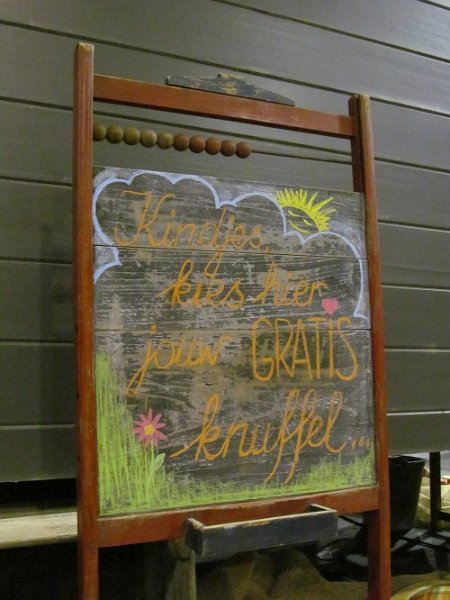 Kindjes
kies hier
jouw GRATIS
knuffel...